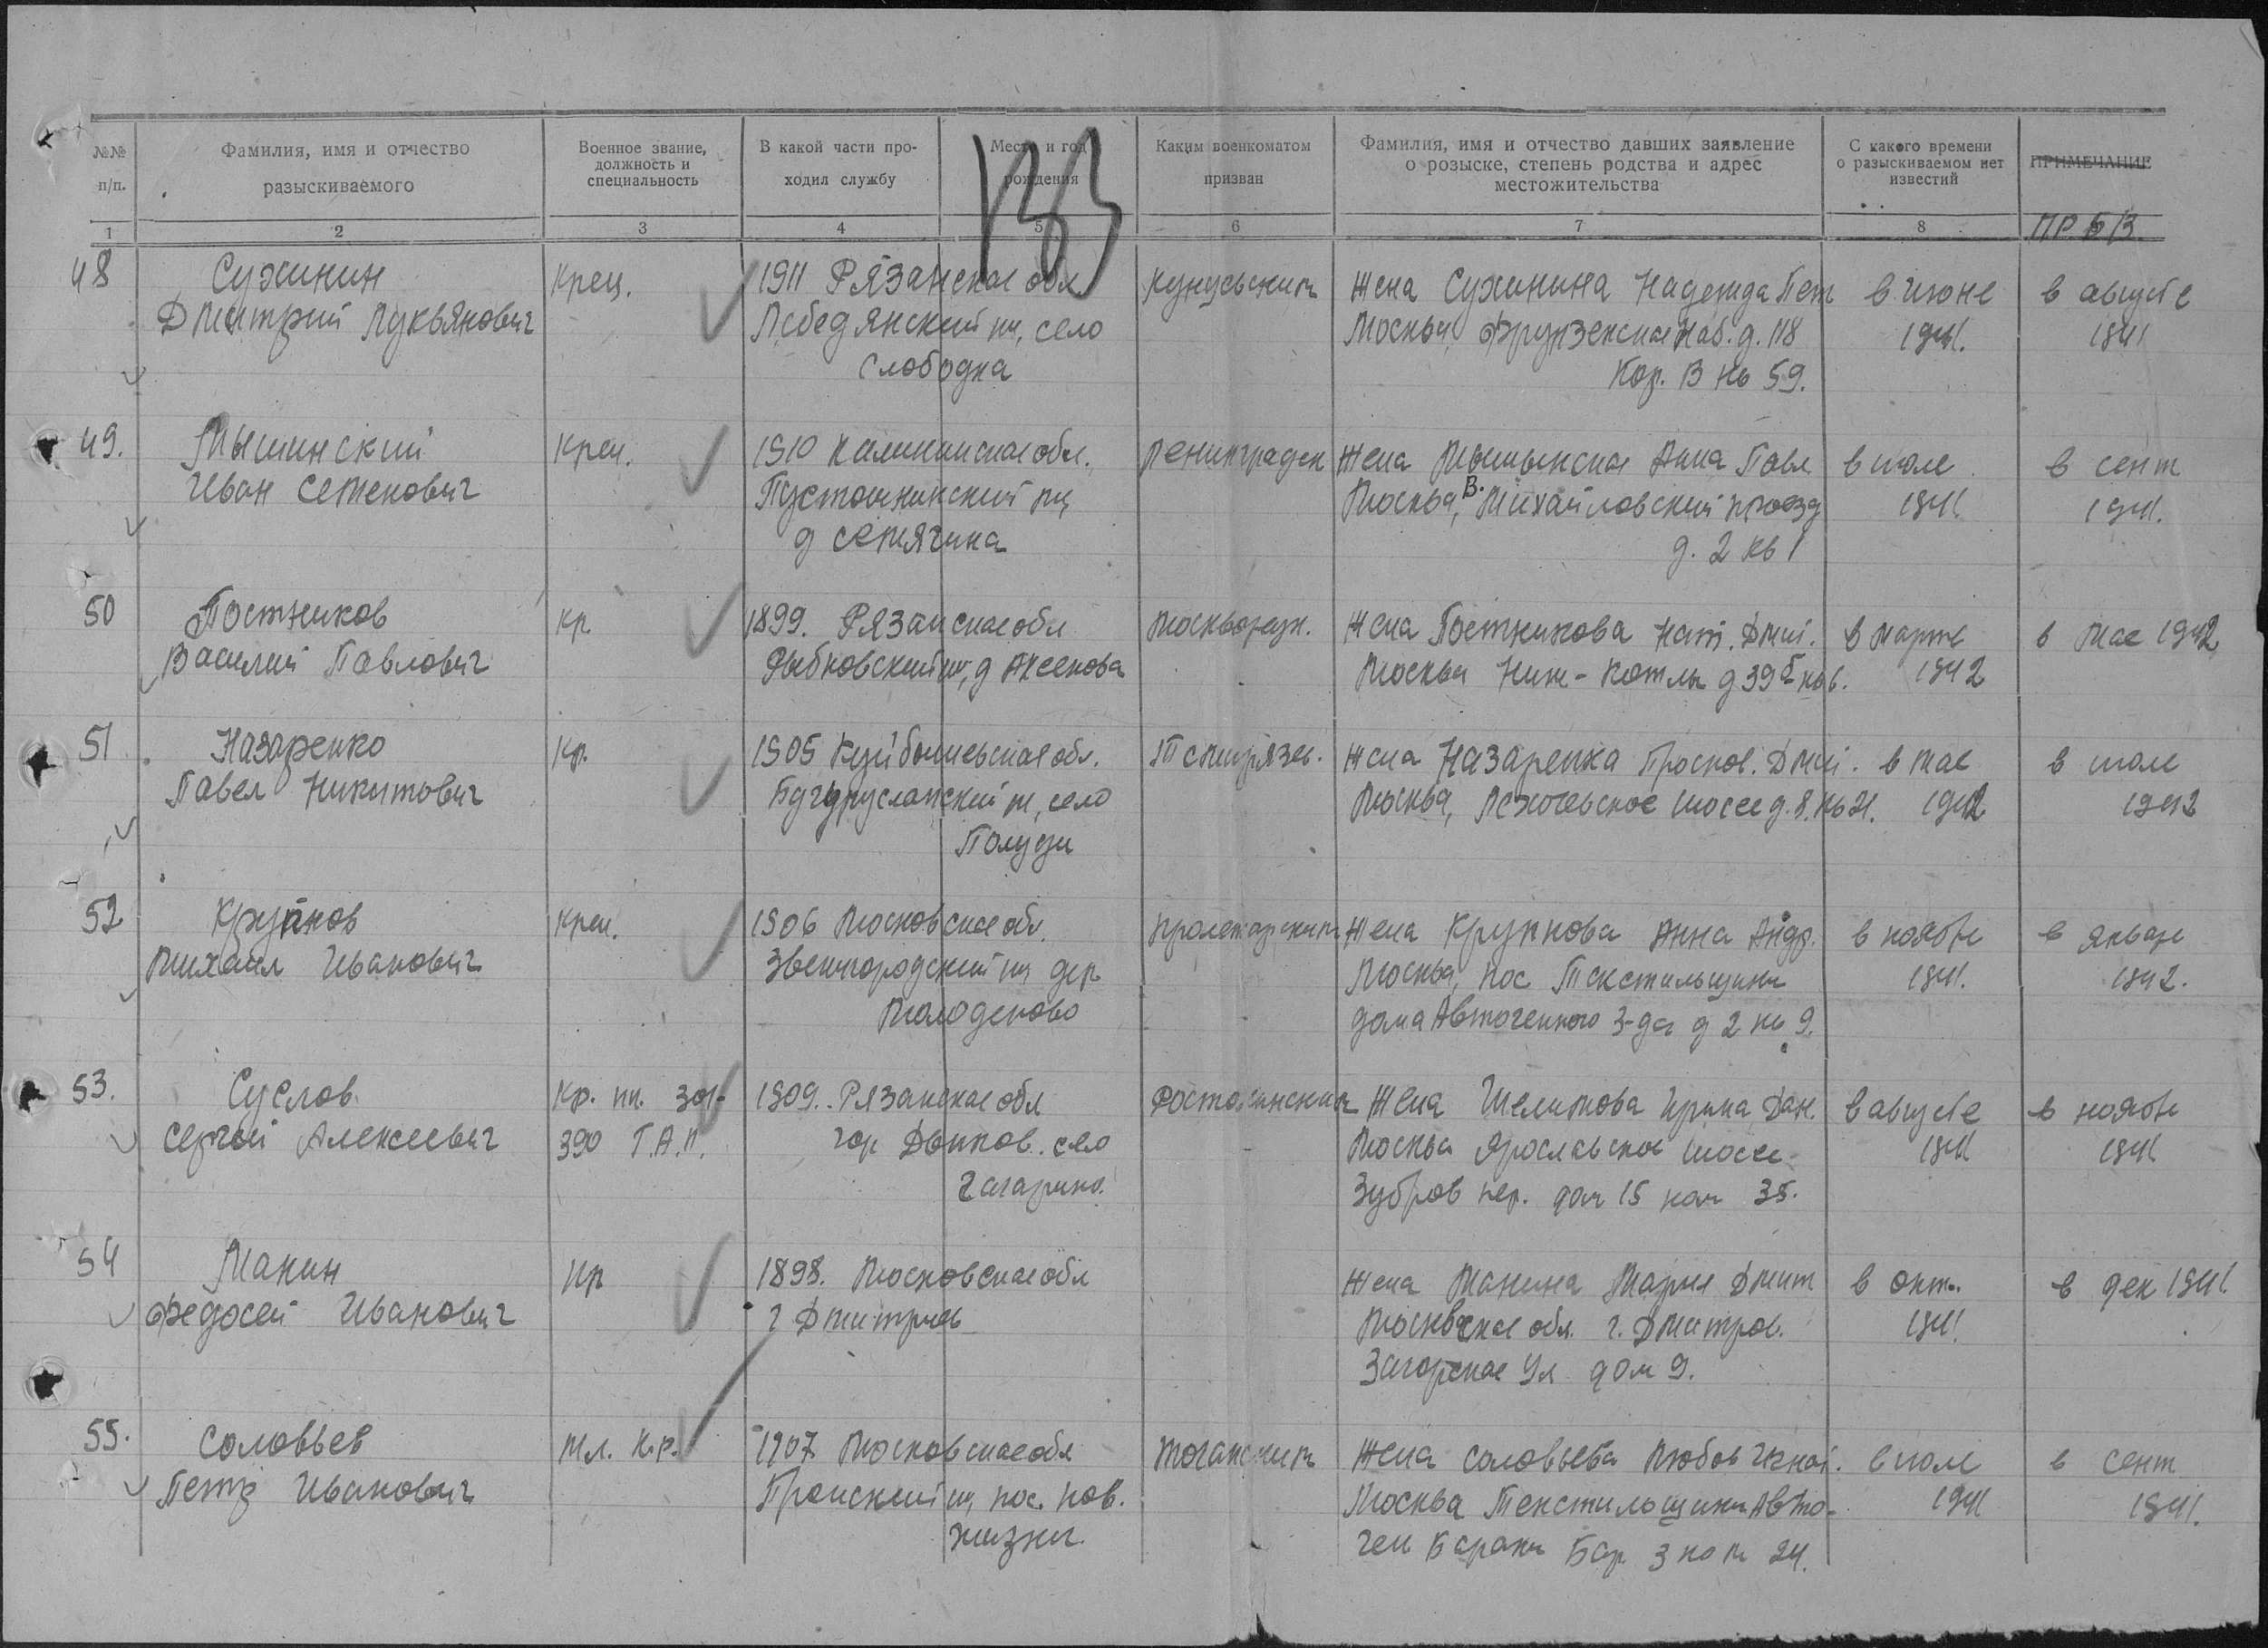 133
№№ п/п.
Фамилия, имя и отчество разыскиваемого
Военное звание, должность и специальность
В какой части проходил службу
Место и год рождения
Каким военкоматом призван
Фамилия, имя и отчество давших заявление о розыске, степень родства и адрес местожительства
С какого времени о разыскиваемом нет известий
ПРИМЕЧАНИЕ
1 2 3 4 5 6 7 8 ПР. Б/З
48 Сухинин Крец. 1911 Рязанская обл Кунцевским Жена Сухинина Надежда Пет в июне в августе
Дмитрий Лукьянович Лебедянский рн, село Москва Фрунзенская наб. д. 118 1941. 1941
Слободка Кор. В кв 59.
49. Мышинский Крец. 1910 Калининская обл. Ленинградск Жена Мышинская Анна Павл в июле в сент
Иван Семенович Пустошкинский рн, Москва, В. Михайловский проезд 1941. 1941.
д Семягина д. 2 кв 1
50 Постников кр 1899. Рязанская обл Москворецк. Жена Постникова Нат. Дми. в марте в мае 1942
Василий Павлович Рыбновский рн, д Аксенова Москва Ниж-Котлы д 39 кв. 1942
51 Назаренко Кр. 1905 Куйбышевская обл. Тимирязев. Жена Назаренка Просков. Дми. в мае в июле
Павел Никитович Бугурусланский рн, село Москва, Лихачевское шоссе д. 8. кв 21. 1942 1942
Полуди
52 Крупнов Крец. 1906 Московская обл. Пролетарским Жена Крупнова Анна Андр. в ноябре в январе
Михаил Иванович Звенигородский рн дер Москва, пос Текстильщики 1941. 1942.
Молоденово дома Автогенного З-да д 2 кв 9.
53. Суслов Кр. 1909. Рязанская обл Ростокинским Жена Шелипова Ирина Дан. в августе в ноябре
Сергей Алексеевич 390 Г.А.П. гор Данков. село Москва Ярославское шоссе 1941 1941
Гагарино. Зубров пер. дом 15 ком 35.
54 Манин кр 1898. Московская обл Жена Манина Мария Дмит в окт. в дек 1941.
Федосей Иванович г Дмитриев Московская обл. г. Дмитров. 1941.
Загорская Ул дом 9.
55. Соловьев мл. к-р. 1907 Московская обл Таганским Жена Соловьева Любовь Игнат. в июле в сент
Петр Иванович Пронский рн, пос. нов. Москва Текстильщики Авто- 1941 1941.
жизни ген Бараки Бар 3 ком 24.